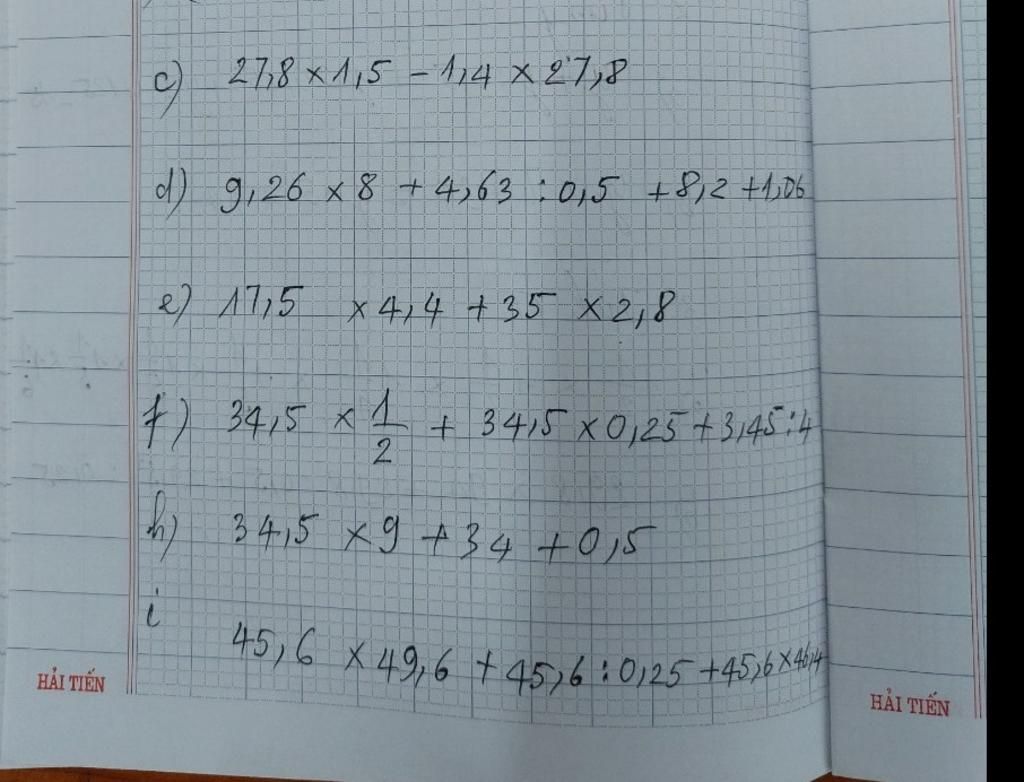 c) 27,8 × 1,5 - 1,4 × 27,8
d) 9,26 × 8 + 4,63 : 0,5 + 8,2 + 1,06
e) 17,5 × 4,4 + 35 × 2,8
f) 34,5 × 1/2 + 34,5 × 0,25 + 3,45 : 4
h) 34,5 × 9 + 34 + 0,5
i
45,6 × 49,6 + 45,6 : 0,25 + 45,6 × 46,4
HẢI TIẾN
HẢI TIẾN